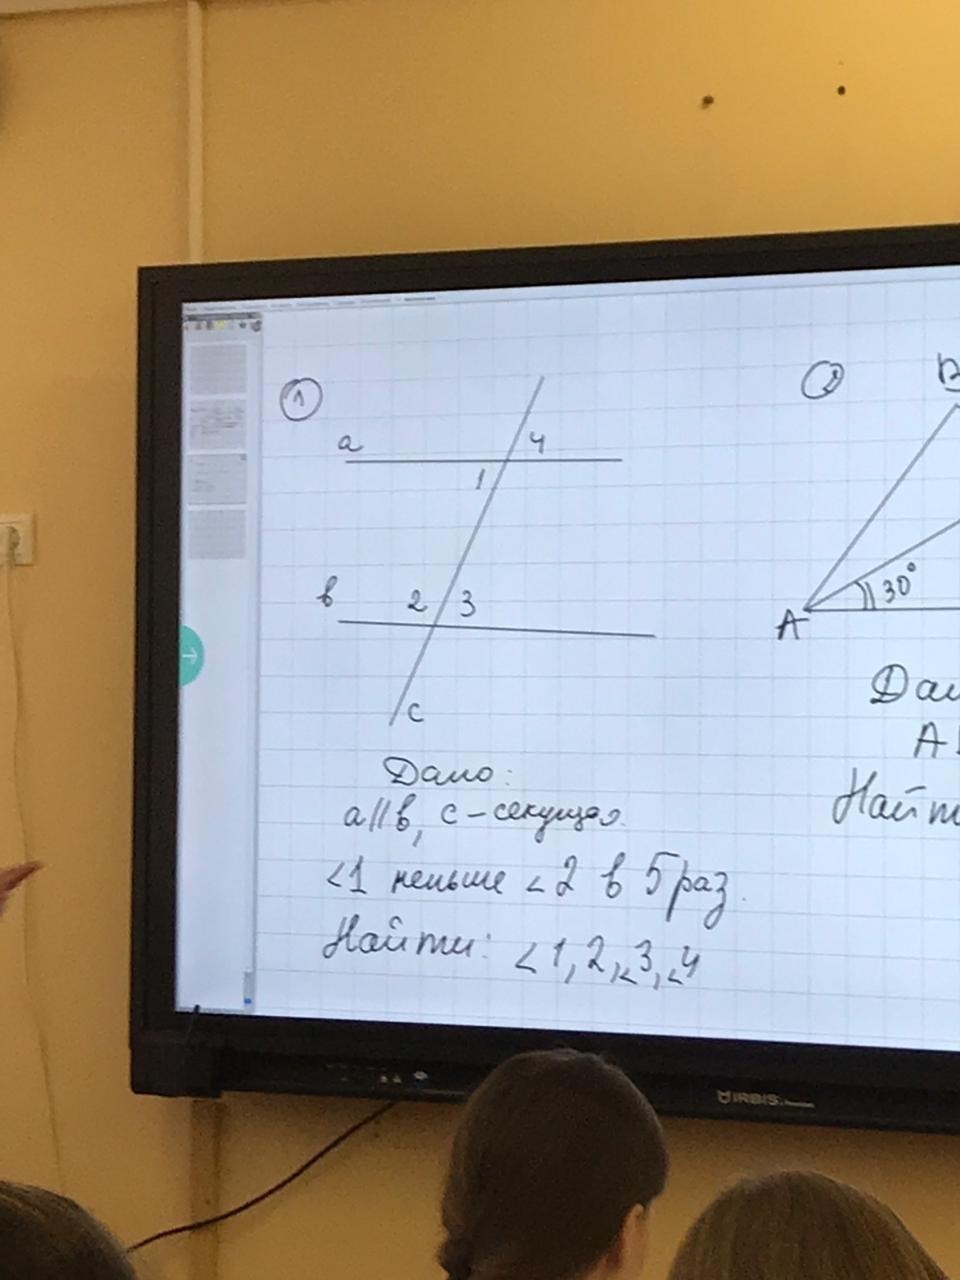 1
a
4
1
в
2 3
c
Дано:
a||в, c - секущая.
<1 меньше <2 в 5 раз.
Найти: <1, 2, <3, <4
2
B
30°
A
Дан
A
Найт
IRBIS